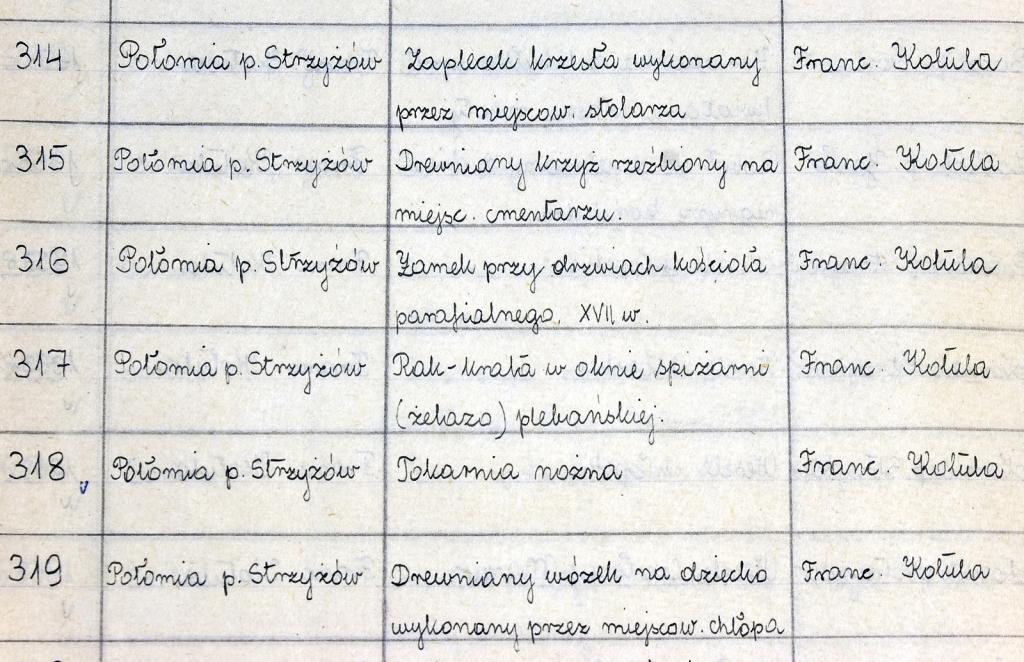 314 Połomia p. Strzyżów Zaplecek krzesła wykonany Franc. Kotula
przez miejscow. stolarza
315 Połomia p. Strzyżów Drewniany krzyż rzeźbiony na Franc. Kotula
miejsc. cmentarzu.
316 Połomia p. Strzyżów Zamek przy drzwiach kościoła Franc. Kotula
parafialnego. XVII w.
317 Połomia p. Strzyżów Rak-krata w oknie spiżarni Franc. Kotula
(żelazo) plebańskiej.
318 Połomia p. Strzyżów Tokarnia nożna Franc. Kotula
319 Połomia p. Strzyżów Drewniany wózek na dziecko Franc. Kotula
wykonany przez miejscow. chłopa